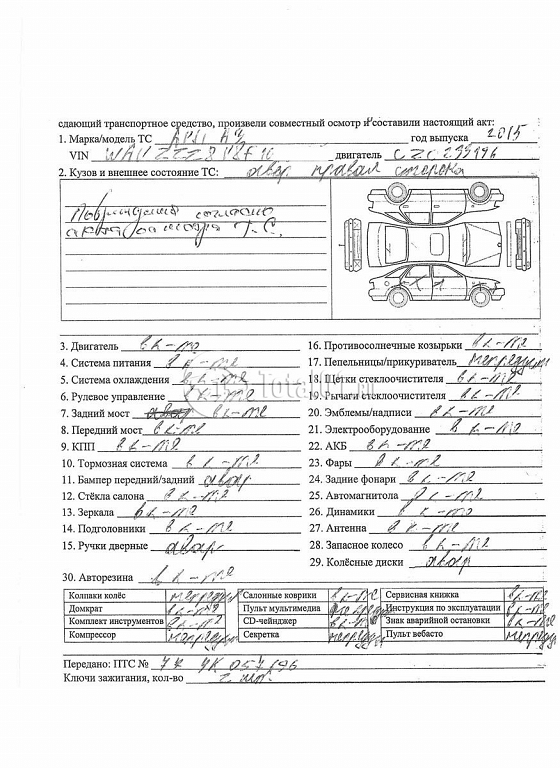 сдающий транспортное средство, произвели совместный осмотр и составили настоящий акт:
1. Марка/модель ТС А3 год выпуска 2015
VIN двигатель
2. Кузов и внешнее состояние ТС: авар правая сторона
Повреждения согласно
акта осмотра Т.С.
3. Двигатель в к-те
4. Система питания в к-те
5. Система охлаждения в к-те
6. Рулевое управление в к-те
7. Задний мост в к-те
8. Передний мост в к-те
9. КПП в к-те
10. Тормозная система в к-те
11. Бампер передний/задний авар
12. Стёкла салона в к-те
13. Зеркала в к-те
14. Подголовники в к-те
15. Ручки дверные авар
16. Противосолнечные козырьки в к-те
17. Пепельницы/прикуриватель
18. Щётки стеклоочистителя в к-те
19. Рычаги стеклоочистителя в к-те
20. Эмблемы/надписи в к-те
21. Электрооборудование в к-те
22. АКБ в к-те
23. Фары в к-те
24. Задние фонари в к-те
25. Автомагнитола в к-те
26. Динамики в к-те
27. Антенна в к-те
28. Запасное колесо в к-те
29. Колёсные диски авар
30. Авторезина в к-те
Колпаки колёс Салонные коврики в к-те Сервисная книжка в к-те
Домкрат в к-те Пульт мультимедиа Инструкция по эксплуатации в к-те
Комплект инструментов в к-те CD-чейнджер в к-те Знак аварийной остановки в к-те
Компрессор Секретка Пульт вебасто
Передано: ПТС №
Ключи зажигания, кол-во 2 шт.